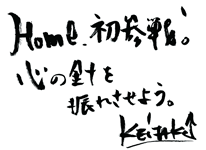 Home.初参戦!
心の針を
振れさせよう。
KEIZAKI